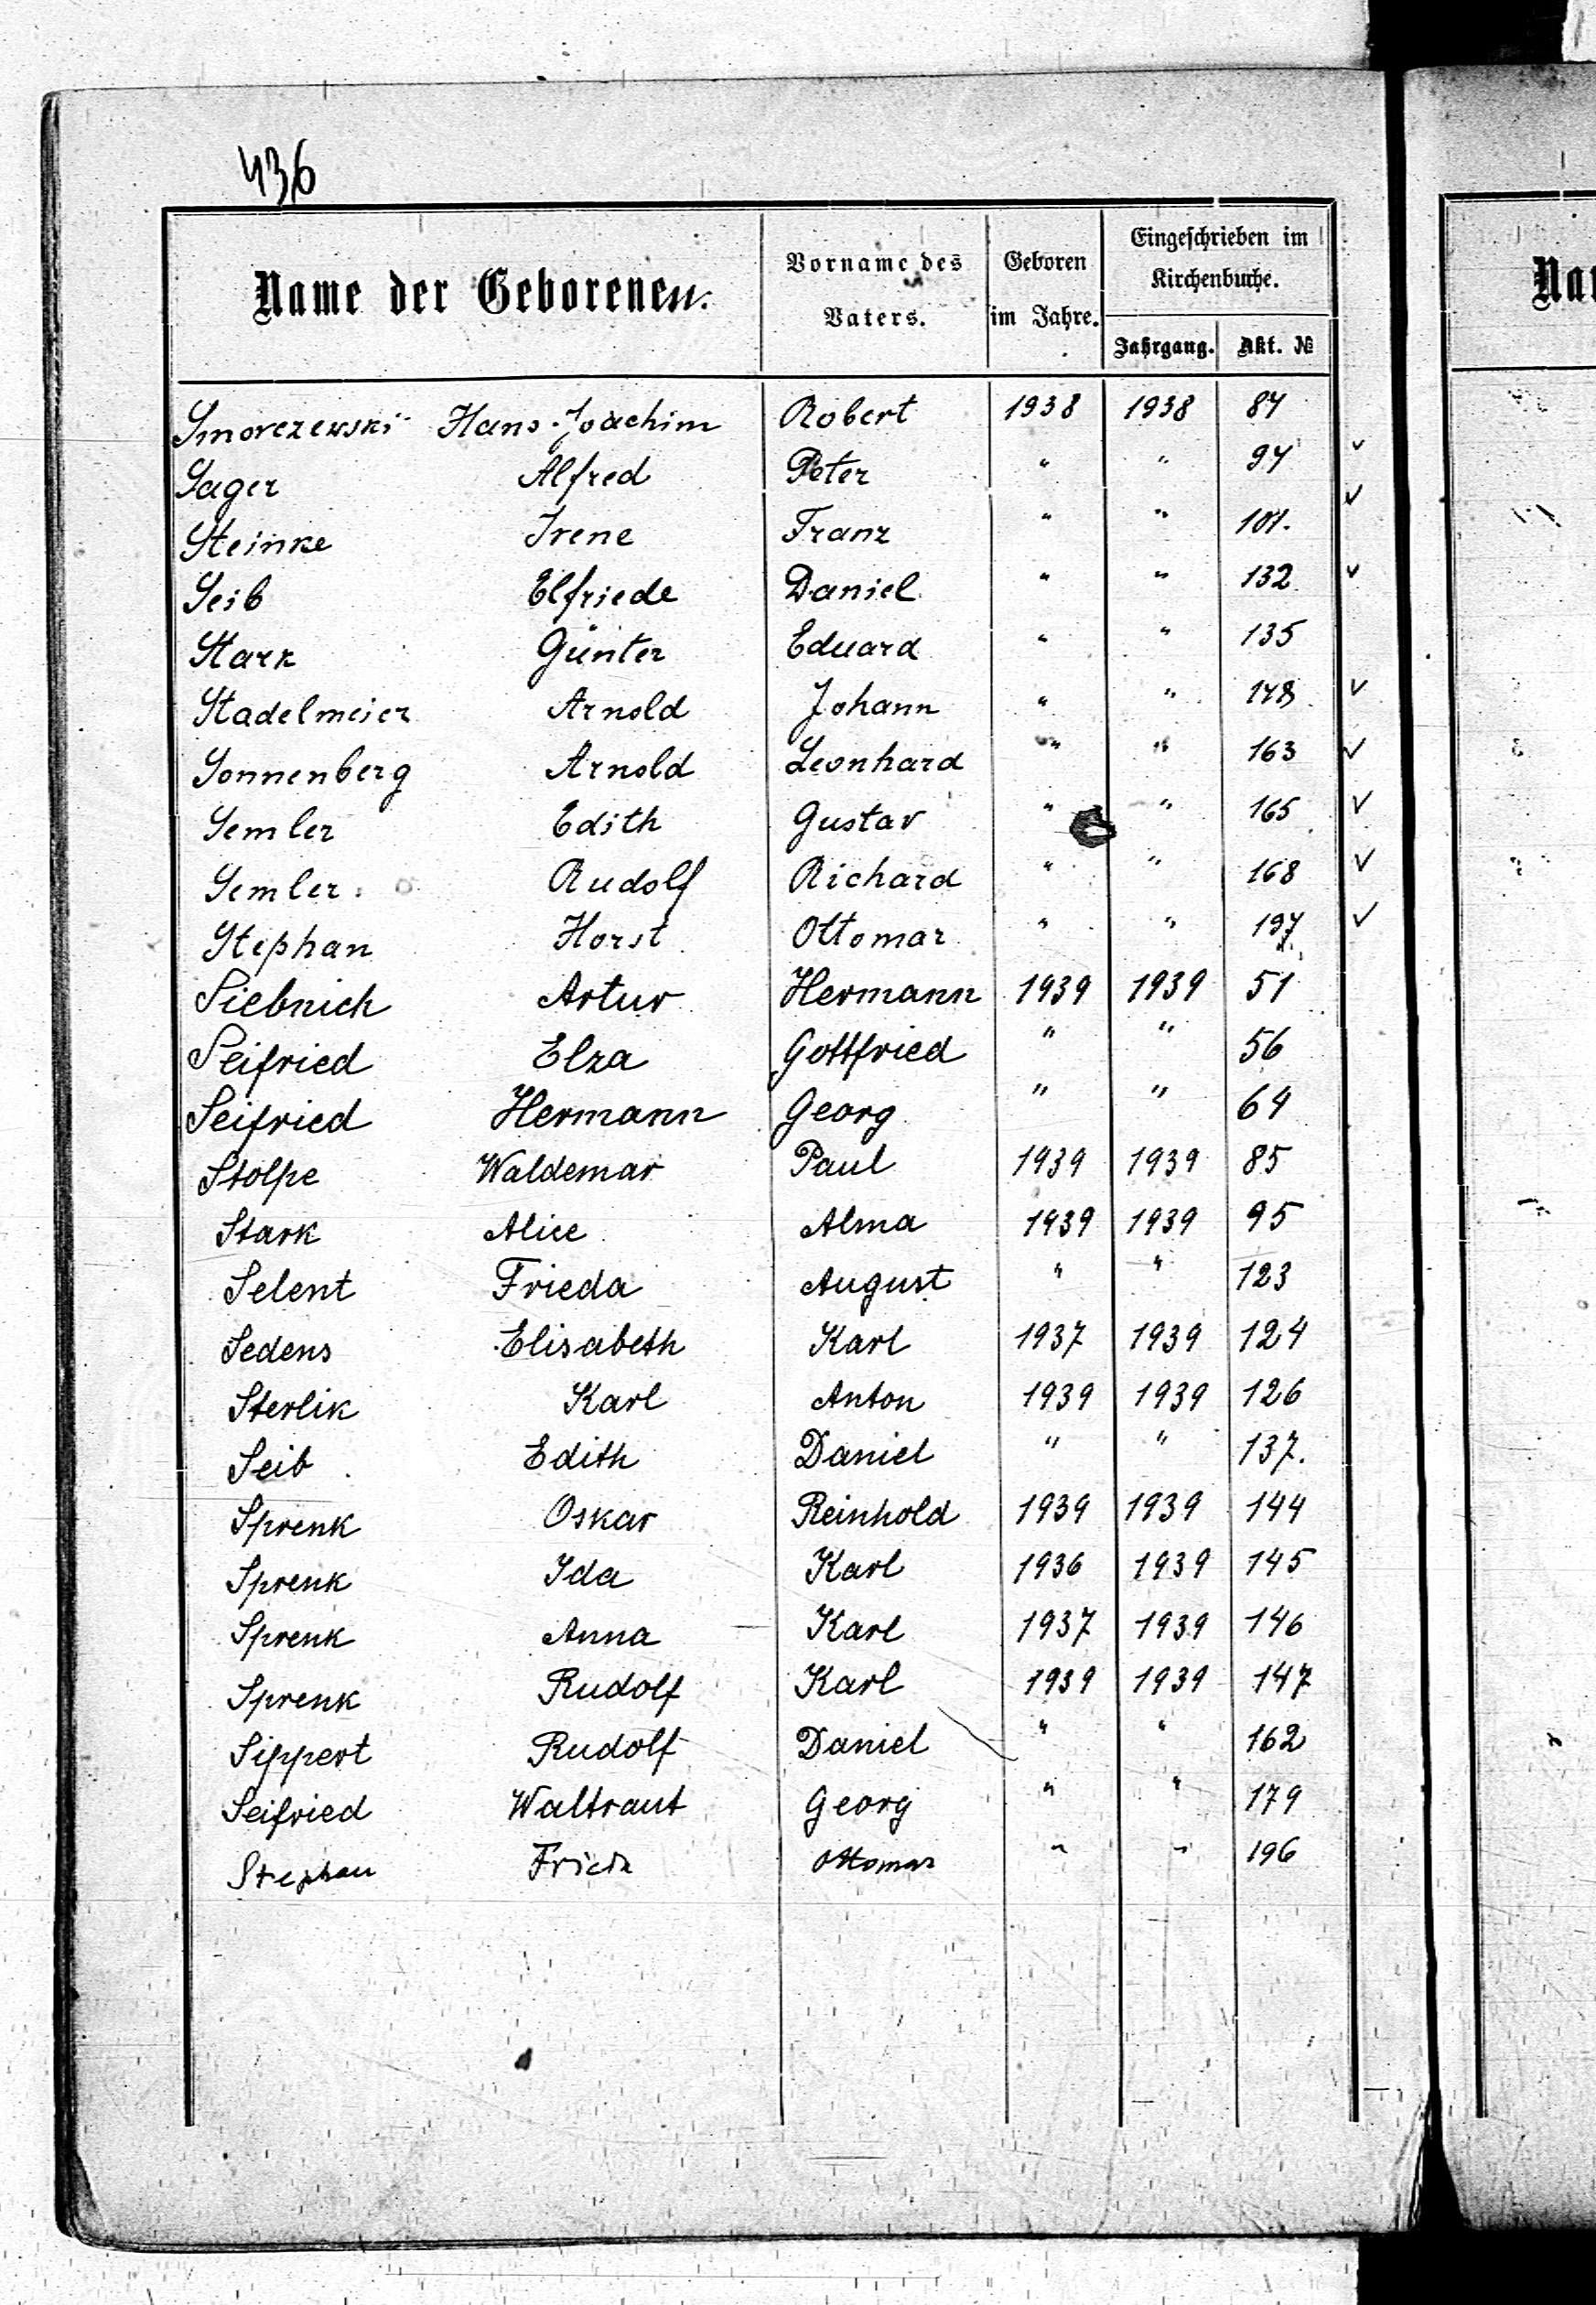 436
Name der Geborenen.
Vorname des Vaters.
Geboren im Jahre.
Eingeschrieben im Kirchenbuche.
Jahrgang. Akt. №
Smorczewski Hans-Joachim Robert 1938 1938 87
Sager Alfred Peter " " 94 ✓
Steinke Irene Franz " " 101. ✓
Seib Elfriede Daniel " " 132 ✓
Stark Günter Eduard " " 135
Stadelmeier Arnold Johann " " 148 ✓
Sonnenberg Arnold Leonhard " " 163 ✓
Semler Edith Gustav " " 165 ✓
Semler Rudolf Richard " " 168 ✓
Stephan Horst Ottomar " " 197 ✓
Siebnich Artur Hermann 1939 1939 51
Seifried Elza Gottfried " " 56
Seifried Hermann Georg " " 64
Stolpe Waldemar Paul 1939 1939 85
Stark Alice Alma 1939 1939 95
Selent Frieda August " " 123
Sedens Elisabeth Karl 1937 1939 124
Sterlik Karl Anton 1939 1939 126
Seib Edith Daniel " " 137.
Sprenk Oskar Reinhold 1939 1939 144
Sprenk Ida Karl 1936 1939 145
Sprenk Anna Karl 1937 1939 146
Sprenk Rudolf Karl 1939 1939 147
Sippert Rudolf Daniel " " 162
Seifried Waltraut Georg " " 179
Stephan Ottomar " " 196